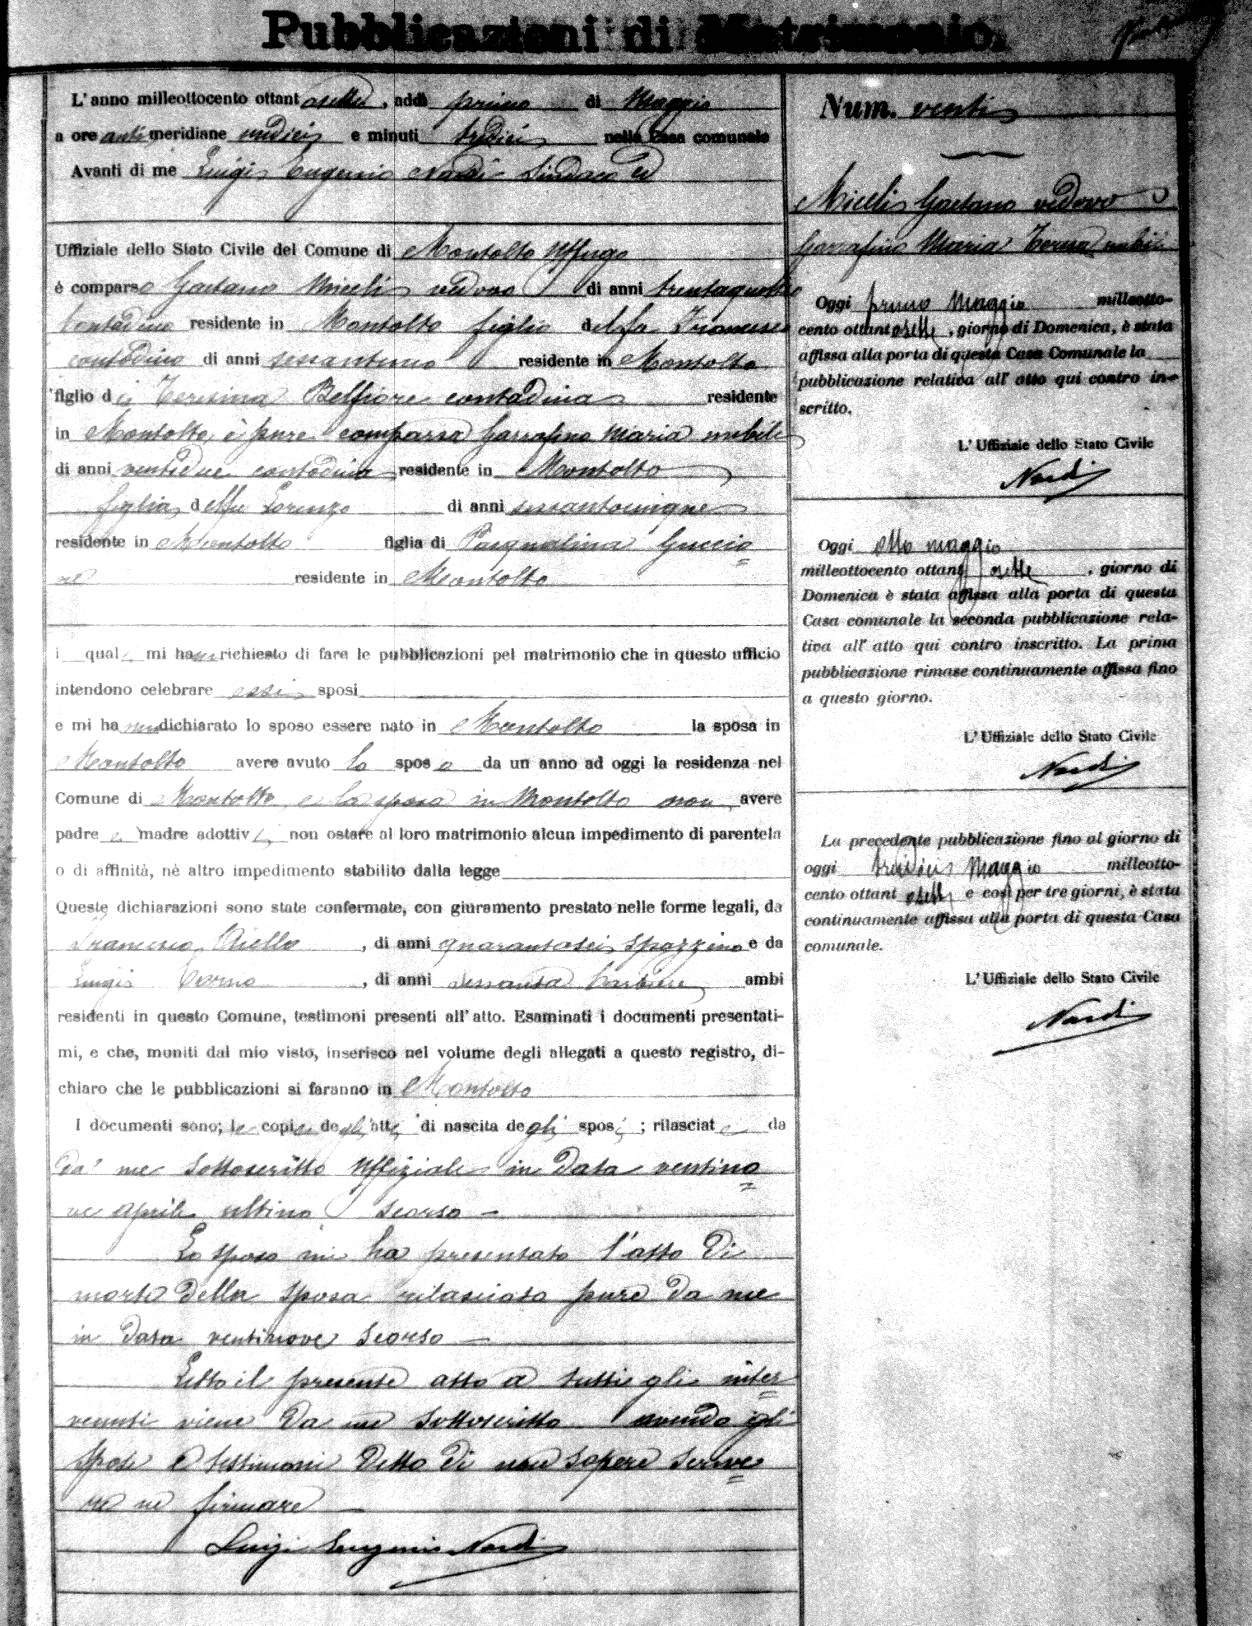 Pubblicazioni di Matrimonio.
L'anno milleottocento ottantasette, addì primo di Maggio
a ore antimeridiane undici e minuti tredici nella Casa comunale
Avanti di me Luigi Eugenio Nardi Sindaco ed
Uffiziale dello Stato Civile del Comune di Montalto Uffugo
è comparso Gaetano Miceli vedovo di anni trentaquattro
contadino residente in Montalto figlio del fu Francesco
contadino di anni sessantuno residente in Montalto
figlio di Teresina Belfiore contadina residente
in Montalto, è pure comparsa Garrafino Maria nubile
di anni ventidue contadina residente in Montalto
figlia del fu Lorenzo di anni sessantacinque
residente in Montalto figlia di Pasqualina Guccio
ne residente in Montalto
i quali mi hanno richiesto di fare le pubblicazioni pel matrimonio che in questo ufficio
intendono celebrare essi sposi
e mi hanno dichiarato lo sposo essere nato in Montalto la sposa in
Montalto avere avuto lo sposo da un anno ad oggi la residenza nel
Comune di Montalto e la sposa in Montalto non avere
padre e madre adottivi, non ostare al loro matrimonio alcun impedimento di parentela
o di affinità, nè altro impedimento stabilito dalla legge
Queste dichiarazioni sono state confermate, con giuramento prestato nelle forme legali, da
Francesco Aiello, di anni quarantasei, spazzino e da
Luigi, di anni sessanta barbiere ambi
residenti in questo Comune, testimoni presenti all'atto. Esaminati i documenti presentati-
mi, e che, muniti dal mio visto, inserisco nel volume degli allegati a questo registro, di-
chiaro che le pubblicazioni si faranno in Montalto
I documenti sono; le copie degli atti di nascita degli sposi; rilasciate da
da me sottoscritto Uffiziale in data ventino
ve aprile ultimo scorso —
Lo sposo mi ha presentato l'atto di
morte della sposa rilasciato pure da me
in data ventinove scorso —
Letto il presente atto a tutti gli inter
venuti viene da me sottoscritto avendo gli
sposi e testimoni detto di non sapere scrive
re ne firmare
Luigi Eugenio Nardi
Num. venti
Miceli Gaetano vedovo
Garrafino Maria Teresa nubile
Oggi primo Maggio milleotto-
cento ottantasette, giorno di Domenica, è stata
affissa alla porta di questa Casa Comunale la
pubblicazione relativa all'atto qui contro in-
scritto.
L'Uffiziale dello Stato Civile
Nardi
Oggi otto maggio
milleottocento ottantasette, giorno di
Domenica è stata affissa alla porta di questa
Casa comunale la seconda pubblicazione rela-
tiva all'atto qui contro inscritto. La prima
pubblicazione rimase continuamente affissa fino
a questo giorno.
L'Uffiziale dello Stato Civile
Nardi
La precedente pubblicazione fino al giorno di
oggi tredici Maggio milleotto-
cento ottantasette e così per tre giorni, è stata
continuamente affissa alla porta di questa Casa
comunale.
L'Uffiziale dello Stato Civile
Nardi